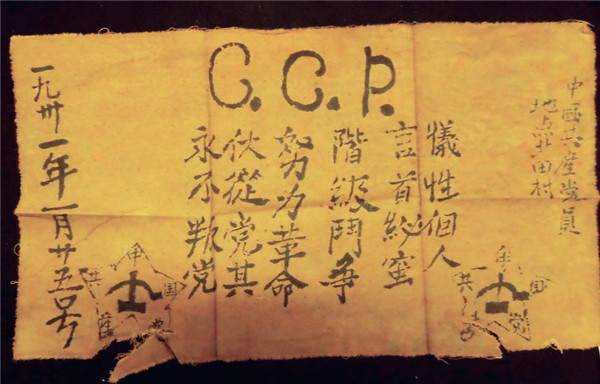 C.C.P.
中國共產党員
地点北田村
犧牲個人
言首泌蜜
階級鬥争
努力革命
伏從党其
永不叛党
一九卅一年一月廿五号
中国共產党
中国共產党